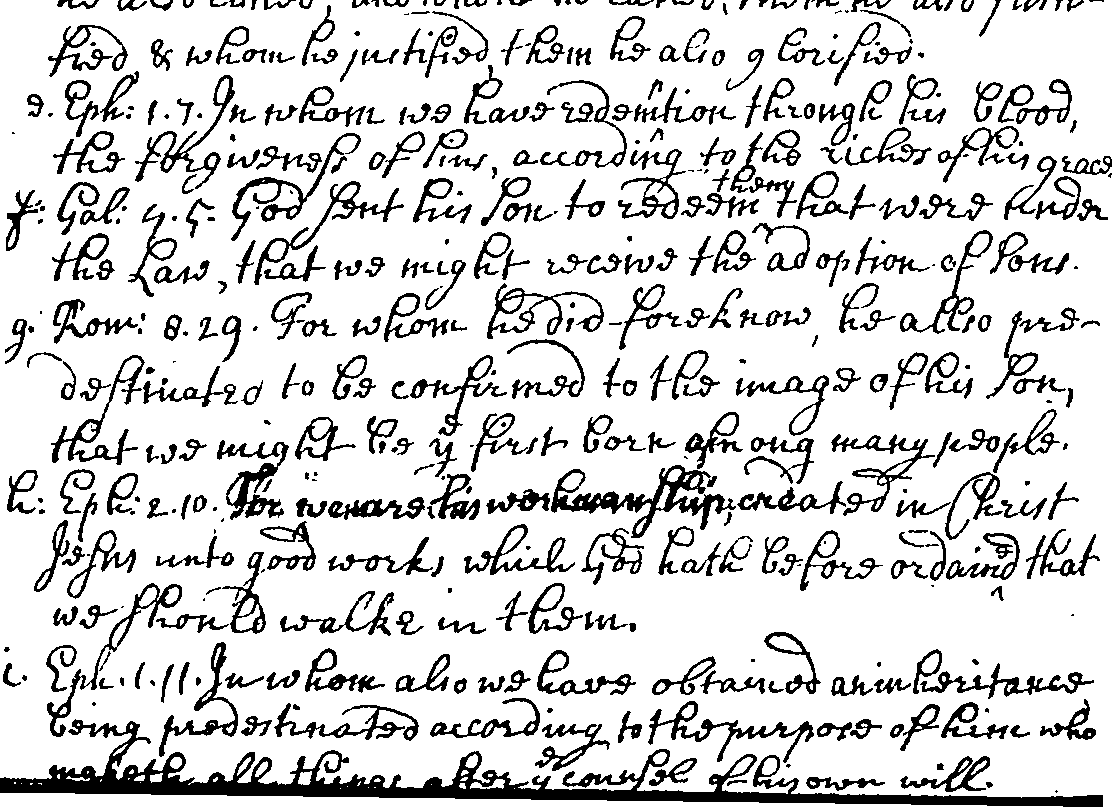 he also called, and whom he called, them he also justi-
fied, & whom he justified, them he also glorified.
e. Eph: 1.7. In whom we have redemtion through his blood,
the forgiveness of sins, according to the riches of his grace.
f: Gal: 4.5. God sent his Son to redeem them that were under
the Law, that we might receive the adoption of Sons.
g. Rom: 8.29. For whom he did foreknow, he allso pre-
destinated to be confirmed to the image of his Son,
that we might be ye first born among many people.
h: Eph: 2.10. For we are his workmanship, created in Christ
Jesus unto good works which God hath before ordained that
we should walke in them.
i. Eph. 1.11. In whom also we have obtained an inheritance
being predestinated according to the purpose of him who
maketh all things after ye counsel of his own will.